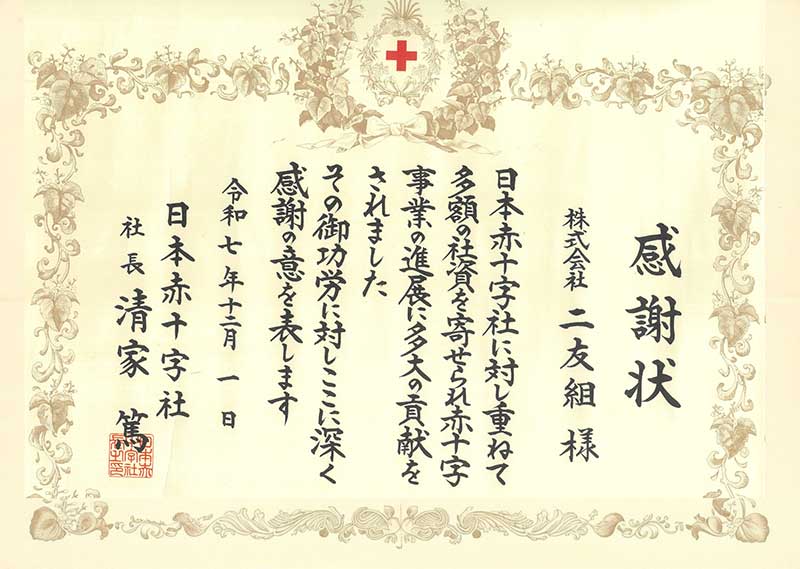 感謝状
株式会社 二友組 様
日本赤十字社に対し重ねて
多額の社資を寄せられ赤十字
事業の進展に多大の貢献を
されました
その御功労に対しここに深く
感謝の意を表します
令和七年十二月一日
日本赤十字社
社長 清家 篤